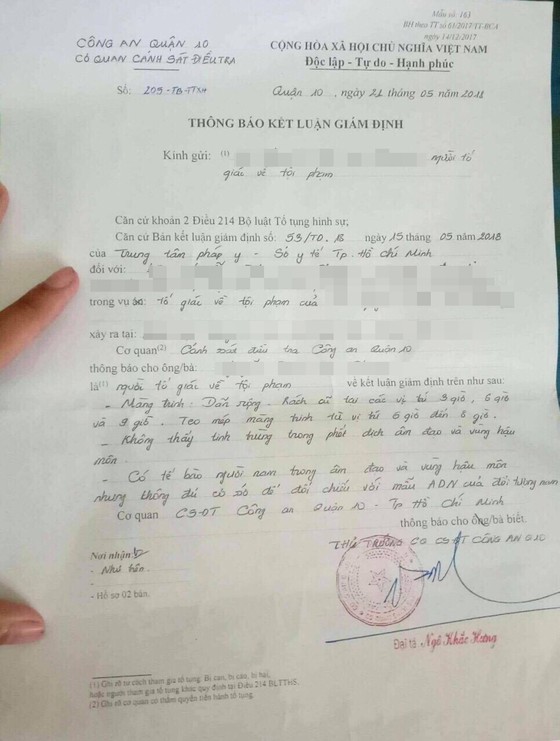 Mẫu số: 163
BH theo TT số 61/2017/TT-BCA
ngày 14/12/2017
CÔNG AN QUẬN 10
CƠ QUAN CẢNH SÁT ĐIỀU TRA
CỘNG HÒA XÃ HỘI CHỦ NGHĨA VIỆT NAM
Độc lập - Tự do - Hạnh phúc
Số: 205-TB-TTNH
Quận 10, ngày 21 tháng 05 năm 2018
THÔNG BÁO KẾT LUẬN GIÁM ĐỊNH
Kính gửi: (1) người tố
giác về tội phạm
Căn cứ khoản 2 Điều 214 Bộ luật Tố tụng hình sự;
Căn cứ Bản kết luận giám định số: 53/TD.18 ngày 15 tháng 05 năm 2018
của Trung tâm pháp y - Sở y tế Tp. Hồ Chí Minh
đối với:
trong vụ án: tố giác về tội phạm của
xảy ra tại:
Cơ quan(2) Cảnh sát điều tra Công an Quận 10
thông báo cho ông/bà:
là(1) người tố giác về tội phạm về kết luận giám định trên như sau:
- Màng trinh: Dãn rộng. Rách cũ tại các vị trí 3 giờ, 6 giờ
và 9 giờ. Teo mép màng trinh từ vị trí 6 giờ đến 8 giờ.
- Không thấy tinh trùng trong phết dịch âm đạo và vùng hậu
môn.
- Có tế bào người nam trong âm đạo và vùng hậu môn
nhưng không đủ cơ sở để đối chiếu với mẫu ADN của đối tượng nam
Cơ quan CSĐT Công an Quận 10 - Tp Hồ Chí Minh
thông báo cho ông/bà biết.
THỦ TRƯỞNG CQ CSĐT CÔNG AN Q10
Nơi nhận:
- Như trên
- Hồ sơ 02 bản.
Đại tá Ngô Khắc Hưng
(1) Ghi rõ tư cách tham gia tố tụng: Bị can, bị cáo, bị hại,
hoặc người tham gia tố tụng khác quy định tại Điều 214 BLTTHS.
(2) Ghi rõ cơ quan có thẩm quyền tiến hành tố tụng.